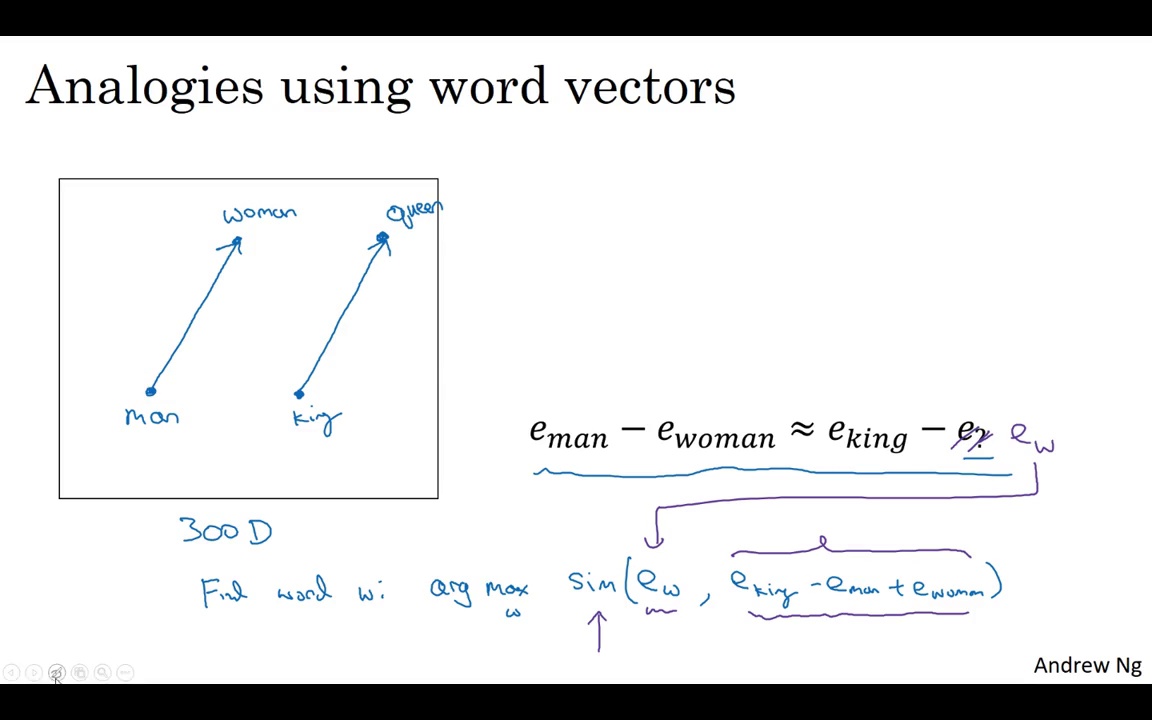 Analogies using word vectors
woman queen
man king
e_man − e_woman ≈ e_king − e_? e_w
300 D
Find word w: arg max_w sim(e_w, e_king - e_man + e_woman)
Andrew Ng